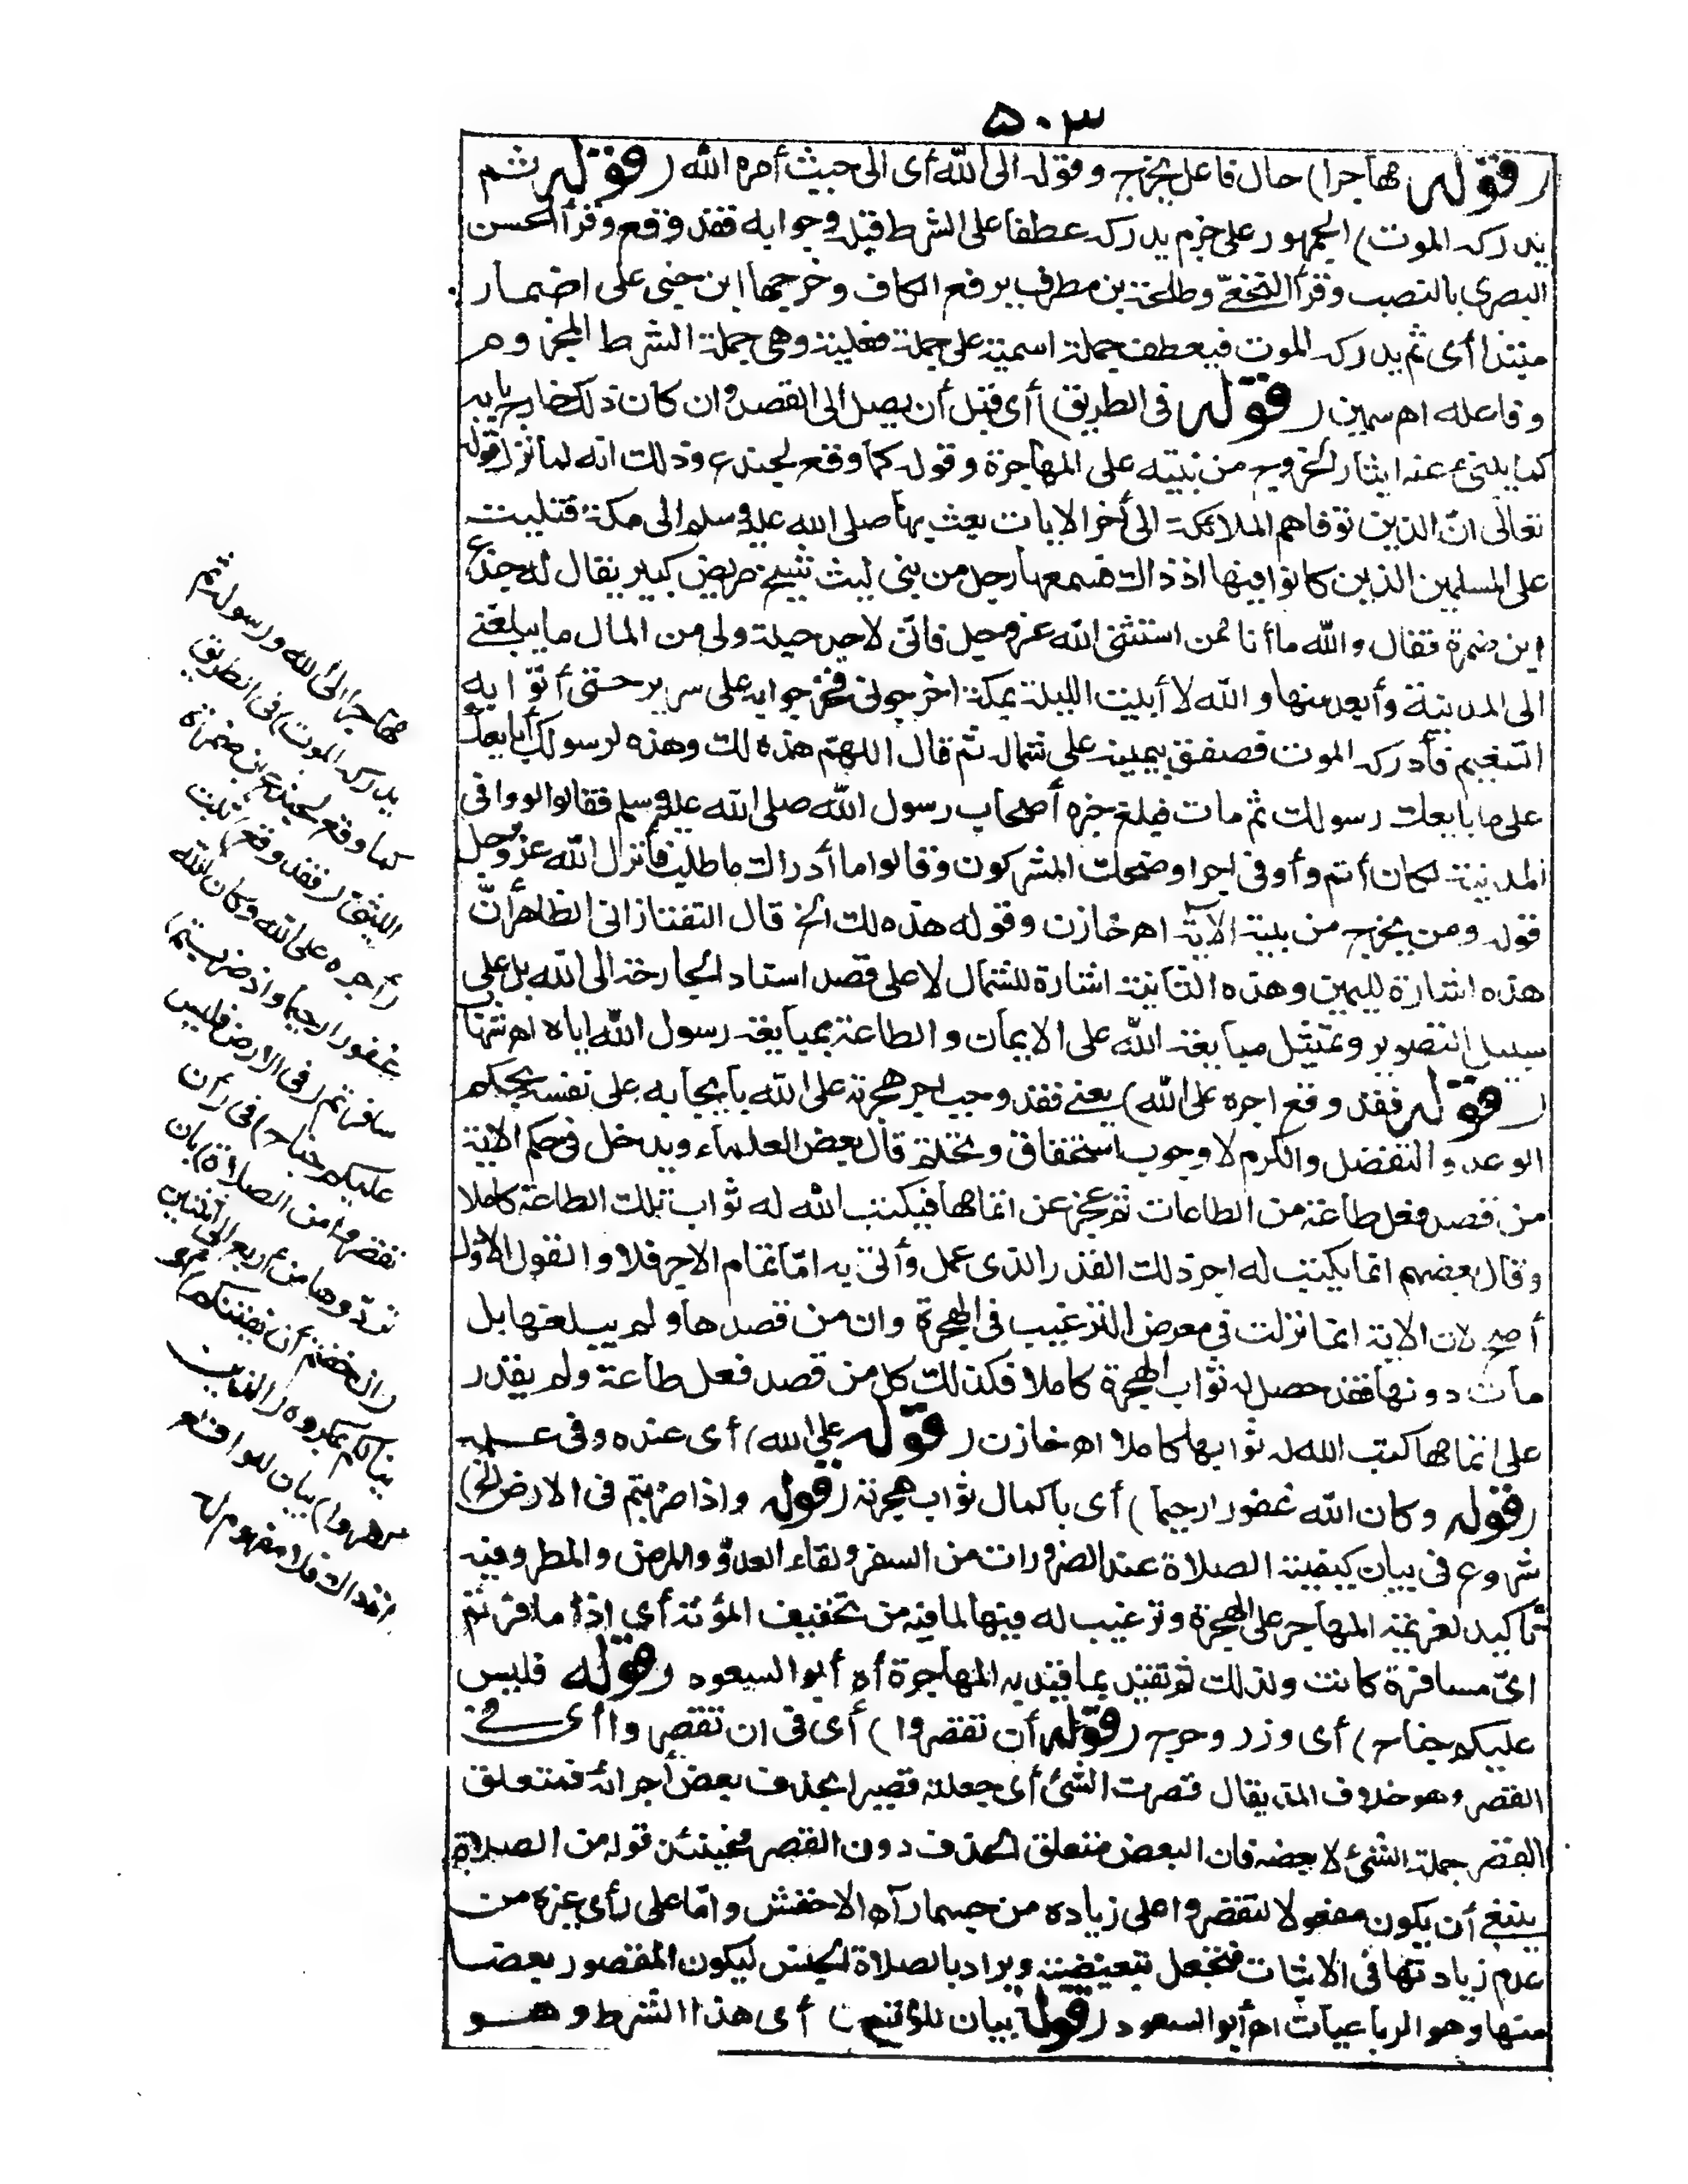 ۵۰۳
(قوله مهاجرا) حال فاعل يخرج وقوله الى الله أى الى حيث أمره الله (قوله ثم
يدركه الموت) الجمهور على جزم يدركه عطفا على الشرط قبله وجوابه فقد وقع وقرأ الحسن
البصرى بالنصب وقرأ النخعىّ وطلحة بن مطرف برفع الكاف وخرجها ابن جنى على اضمار
مبتدا أى ثم يدركه الموت فيعطف جملة اسمية على جملة فعلية وهى جملة الشرط المجزوم
وفاعله اهـ سمين (قوله فى الطريق) أى قبل أن يصل الى القصد وان كان ذلك خارج بابه
كما ينبئ عنه ايثار الخروج من بيته على المهاجرة وقوله كما وقع لجندع وذلك انه لما نزل قوله
تعالى انّ الذين توفاهم الملائكة الى أخر الايات بعث بها صلى الله عليه وسلم الى مكة فتليت
على المسلمين الذين كانوا فيها اذ ذاك فسمعها رجل من بنى ليث شيخ مريض كبير يقال له جندع
ابن ضمرة فقال والله ما أنا ممن استثنى الله عز وجل فانّى لاجد حيلة ولى من المال ما يبلغنى
الى المدينة وأبعد منها والله لا أبيت الليلة بمكة اخرجونى فخرجوا به على سرير حتى أتوا به
التنعيم فأدركه الموت فصفق بيمينه على شماله ثم قال اللهمّ هذه لك وهذه لرسولك أبايعك
على ما بايعك رسولك ثم مات فبلغ خبره أصحاب رسول الله صلى الله عليه وسلم فقالوا لو وافى
المدينة لكان أتم وأوفى اجرا وضحك المشركون وقالوا ما أدرك ما طلب فأنزل الله عز وجل
قوله ومن يخرج من بيته الآية اهـ خازن وقوله هذه لك الخ قال التفتازانى الظاهر أنّ
هذه اشارة لليمين وهذه الثانية اشارة للشمال لا على قصد اسناد الجارحة الى الله بل على
سبيل التصوير وتمثيل مبايعة الله على الايمان والطاعة بمبايعة رسول الله اياه اهـ شهاب
(قوله فقد وقع اجره على الله) يعنى فقد وجب اجر هجرته على الله بايجابه على نفسه بحكم
الوعد والتفضل والكرم لا وجوب استحقاق وتحتم قال بعض العلماء ويدخل فى حكم الاية
من قصد فعل طاعة من الطاعات ثم عجز عن اتمامها فيكتب الله له ثواب تلك الطاعة كاملا
وقال بعضهم انما يكتب له اجر ذلك القدر الذى عمل وأتى به امّا تمام الاجر فلا والقول الاول
أصح لان الاية انما نزلت فى معرض الترغيب فى الهجرة وان من قصدها ولم يبلغها بل
مات دونها فقد حصل له ثواب الهجرة كاملا فكذلك كل من قصد فعل طاعة ولم يقدر
على اتمامها كتب الله له ثوابها كاملا اهـ خازن (قوله على الله) أى عنده وفى علمه
(قوله وكان الله غفورا رحيما) أى باكمال ثواب هجرته (قوله واذا ضربتم فى الارض الخ)
شروع فى بيان كيفية الصلاة عند الضرورات من السفر ولقاء العدوّ والمرض والمطر وفيه
تأكيد لعزيمة المهاجر على الهجرة وترغيب له فيها لما فيه من تخفيف المؤنة أى اذا سافرتم
اىّ مسافرة كانت ولذلك لم تقيد بما قيد به المهاجرة اهـ أبو السعود (قوله فليس
عليكم جناح) أى وزر وحرج (قوله أن تقصروا) أى فى ان تقصروا أى فى
القصر وهو خلاف المدّ يقال قصرت الشئ أى جعلته قصيرا بحذف بعض أجزائه فمتعلق
القصر جملة الشئ لا بعضه فان البعض متعلق الحذف دون القصر فحينئذ قوله من الصلاة
ينبغى أن يكون مفعولا لتقصروا على زيادة من حسبما رآه الاخفش وامّا على رأى غيره من
عدم زيادتها فى الاثبات فتجعل تبعيضية ويراد بالصلاة الجنس ليكون المقصور بعضا
منها وهو الرباعيات اهـ أبو السعود (قوله بيان للواقع) أى هذا الشرط وهو
مهاجرا الى الله ورسوله ثم
يدركه الموت) فى الطريق
كما وقع لجندع ابن ضمرة
الليثى (فقد وقع) ثبت
(أجره على الله وكان الله
غفورا رحيما واذا ضربتم)
سافرتم (فى الارض فليس
عليكم جناح) فى (أن
تقصروا من الصلاة) بان
تردّوها من أربع الى اثنتين
(ان خفتم أن يفتنكم) أى
ينالكم بمكروه (الذين
كفروا) بيان للواقع
اذ ذاك فلا مفهوم له